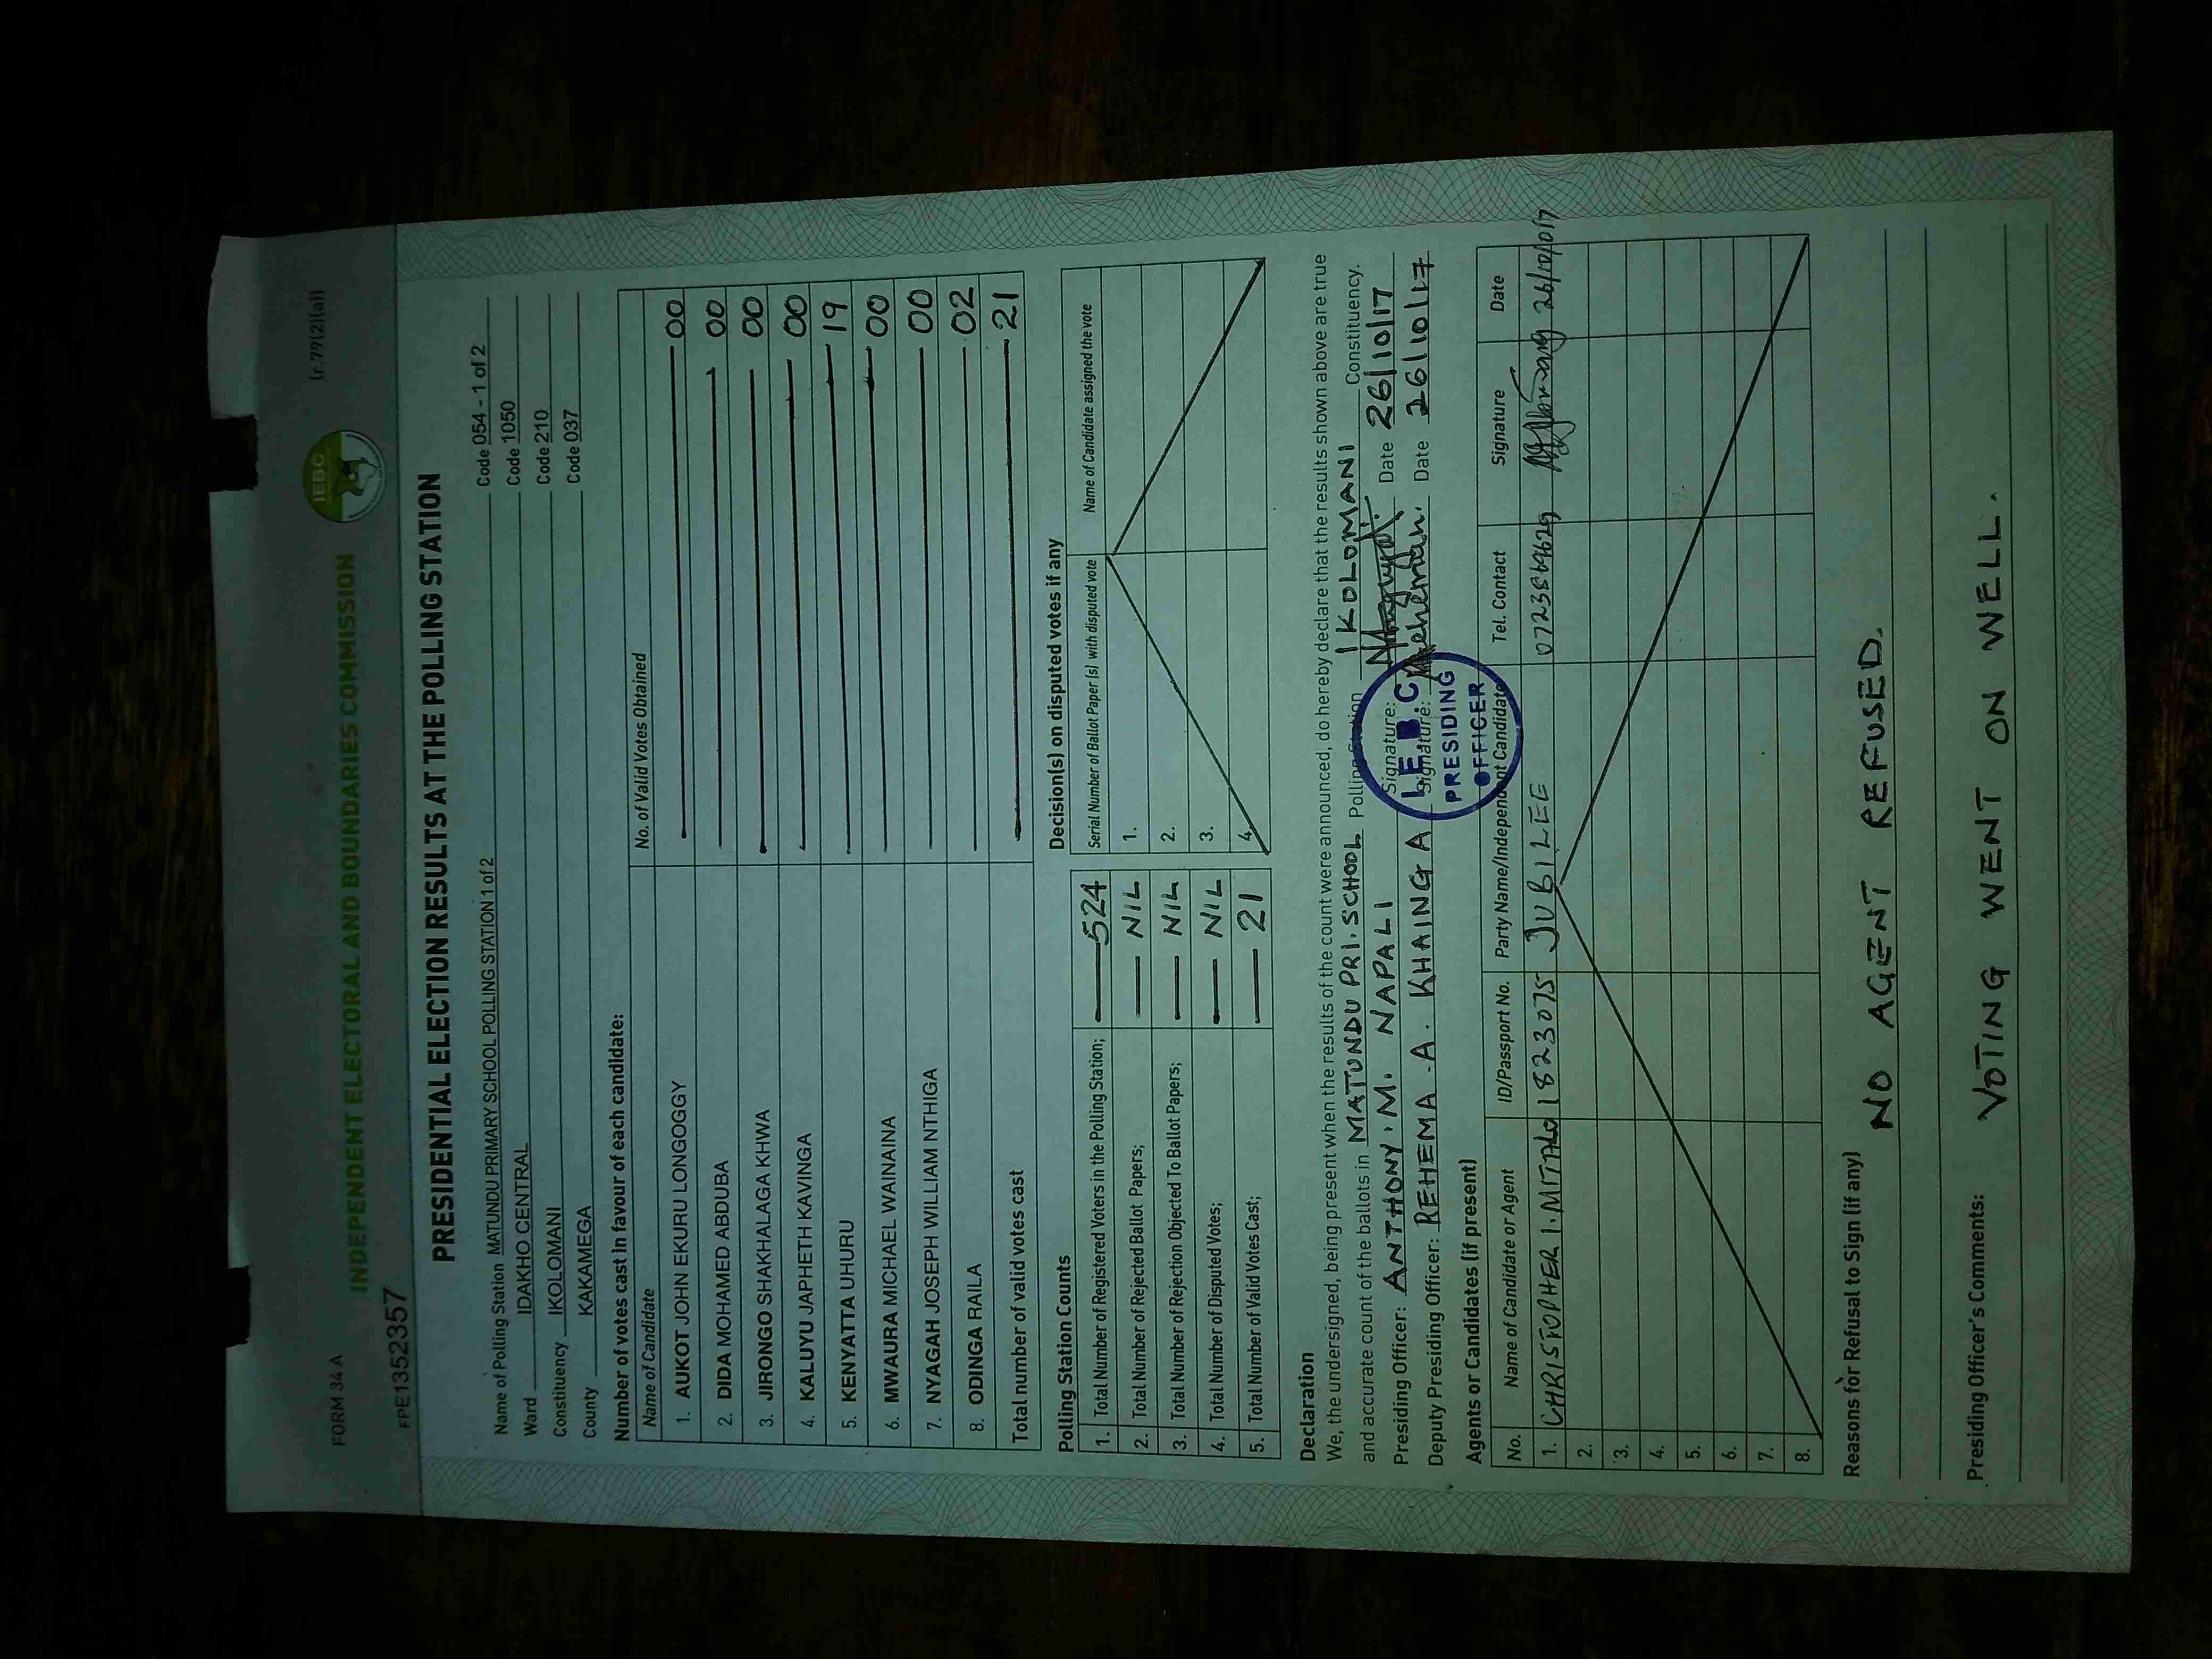 FORM 34 A
(r.79(2)(a))
INDEPENDENT ELECTORAL AND BOUNDARIES COMMISSION
IEBC
FPE1352357
PRESIDENTIAL ELECTION RESULTS AT THE POLLING STATION
Name of Polling Station MATUNDU PRIMARY SCHOOL POLLING STATION 1 of 2 Code 054 - 1 of 2
Ward IDAKHO CENTRAL Code 1050
Constituency IKOLOMANI Code 210
County KAKAMEGA Code 037
Number of votes cast in favour of each candidate:
Name of Candidate No. of Valid Votes Obtained
1. AUKOT JOHN EKURU LONGOGGY 00
2. DIDA MOHAMED ABDUBA 00
3. JIRONGO SHAKHALAGA KHWA 00
4. KALUYU JAPHETH KAVINGA 00
5. KENYATTA UHURU 19
6. MWAURA MICHAEL WAINAINA 00
7. NYAGAH JOSEPH WILLIAM NTHIGA 00
8. ODINGA RAILA 02
Total number of valid votes cast 21
Polling Station Counts
1. Total Number of Registered Voters in the Polling Station; 524
2. Total Number of Rejected Ballot Papers; NIL
3. Total Number of Rejection Objected To Ballot Papers; NIL
4. Total Number of Disputed Votes; NIL
5. Total Number of Valid Votes Cast; 21
Decision(s) on disputed votes if any
Serial Number of Ballot Paper (s) with disputed vote Name of Candidate assigned the vote
1.
2.
3.
4.
Declaration
We, the undersigned, being present when the results of the count were announced, do hereby declare that the results shown above are true
and accurate count of the ballots in MATUNDU PRI. SCHOOL Polling Station IKOLOMANI Constituency.
Presiding Officer: ANTHONY. M. NAPALI Signature: Date 26/10/17
Deputy Presiding Officer: REHEMA .A. KHAINGA Signature: Date 26/10/17
I.E.B.C
PRESIDING
OFFICER
Agents or Candidates (if present)
No. Name of Candidate or Agent ID/Passport No. Party Name/Independent Candidate Tel. Contact Signature Date
1. CHRISTOPHER I. 1823075 JUBILEE
2.
3.
4.
5.
6.
7.
8.
Reasons for Refusal to Sign (if any)
NO AGENT REFUSED.
Presiding Officer's Comments:
VOTING WENT ON WELL.